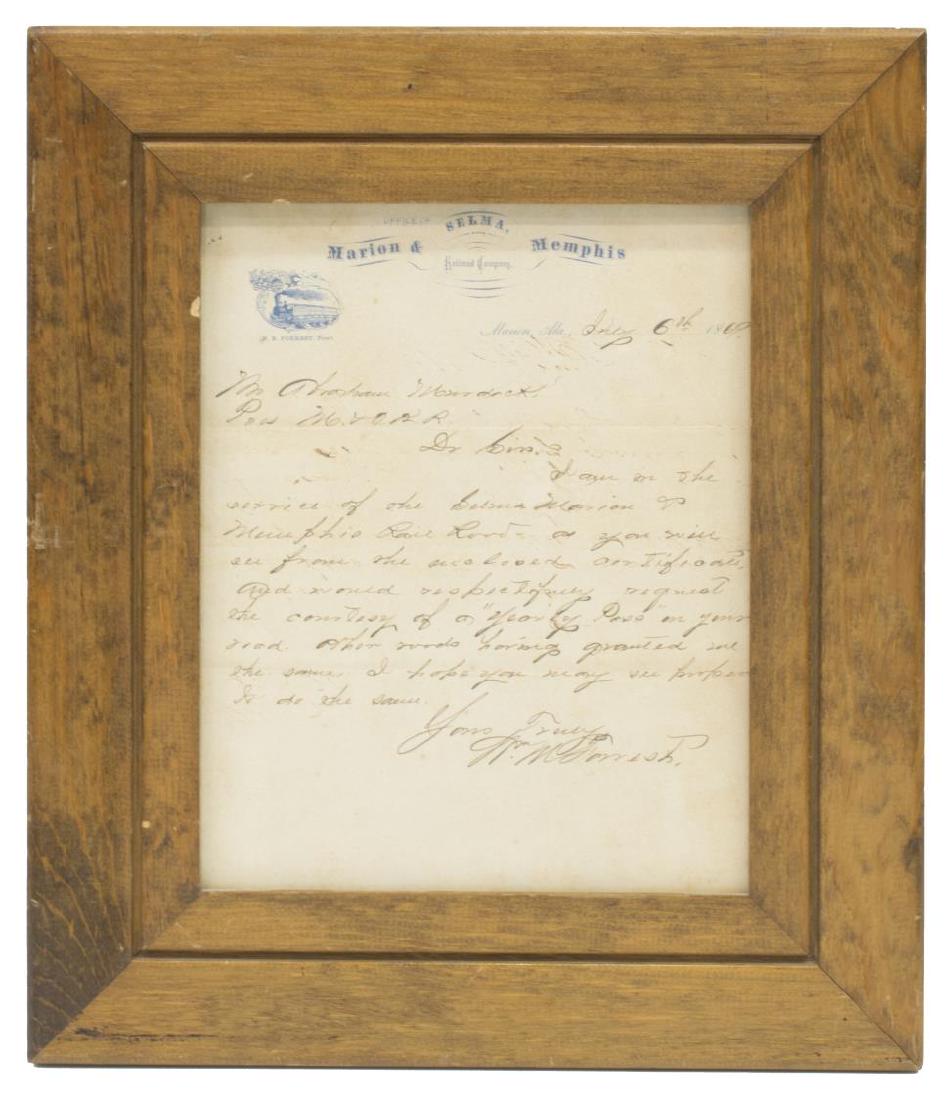 OFFICE OF
SELMA,
Marion & Memphis
Railroad Company,
N. B. FORREST, Prest
Marion, Ala., July 6th 186
Mr Abraham Murdock
Pres M. & O R R.
Dr Sir.
I am in the
service of the Selma Marion &
Memphis Rail Road - as you will
see from the enclosed certificate,
And would respectfully request
the courtesy of a "Yearly Pass" on your
road. Other roads having granted me
the same, I hope you may see proper
to do the same.
Yors Truly
Wm M Forrest.